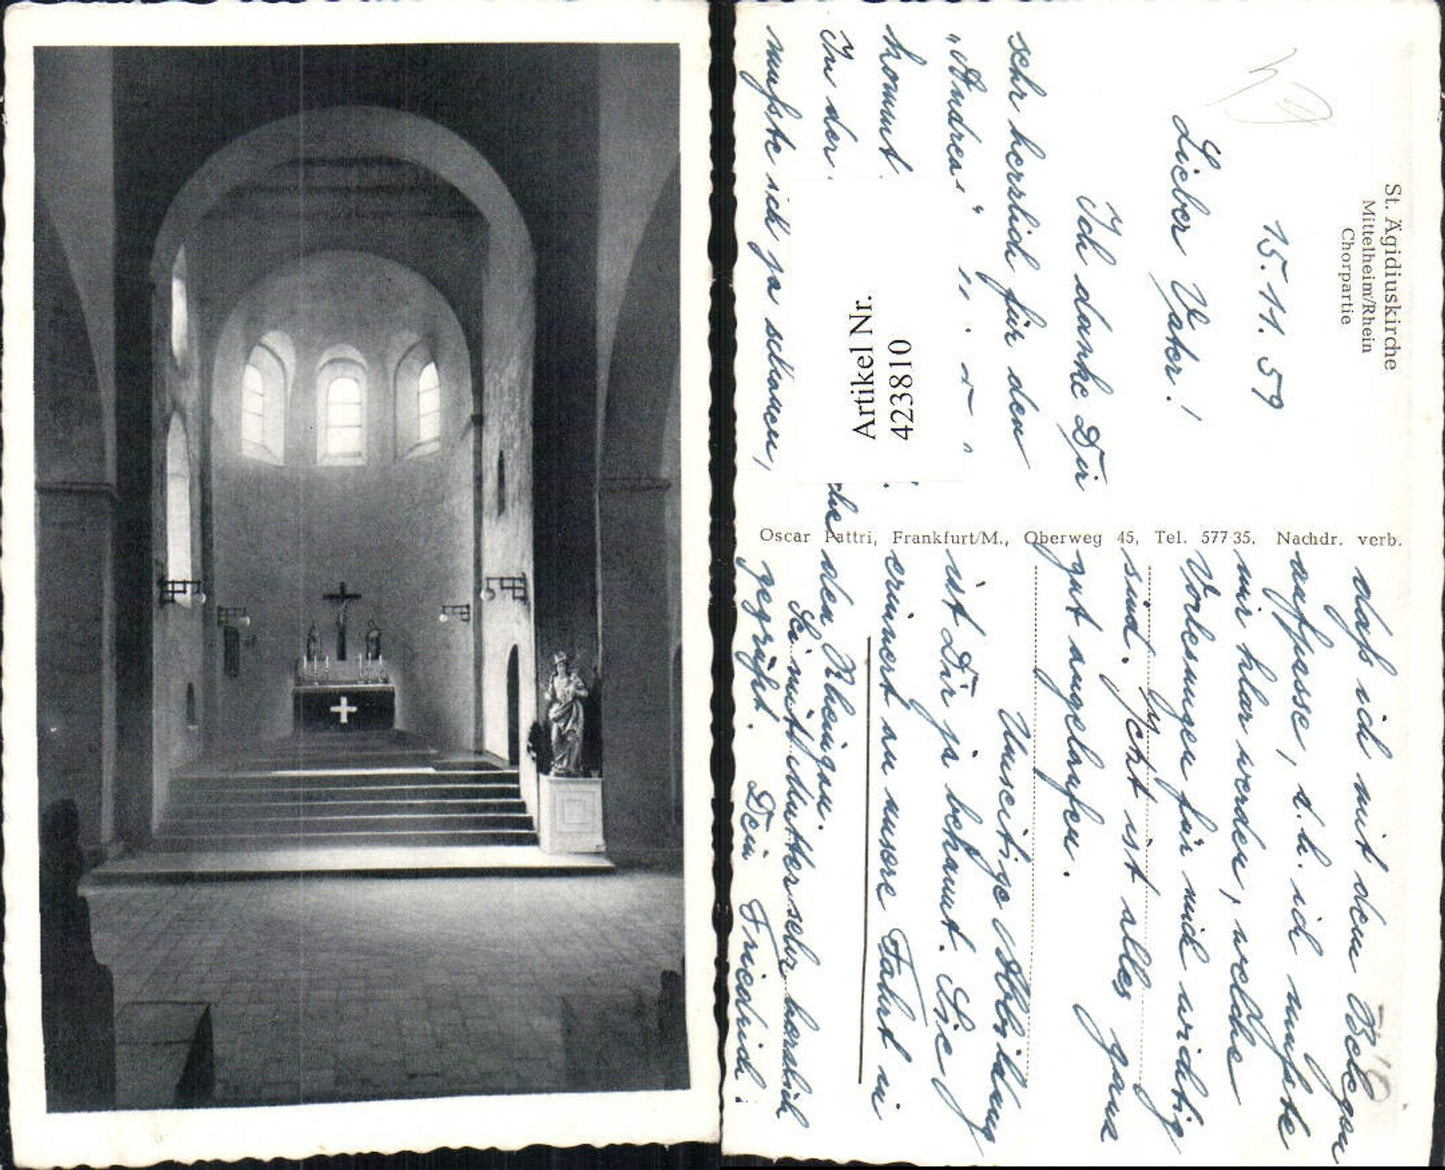 St. Ägidiuskirche
Mittelheim/Rhein
Chorpartie
15.11.59
Lieber Vater!
Ich danke Dir
sehr herzlich für den
„Andrea"
kommt
In der
mußte ich ja schauen,
Artikel Nr.
423810
Oscar Pattri, Frankfurt/M., Oberweg 45, Tel. 577 35. Nachdr. verb.
daß ich mit dem Belegen
aufpasse, d.h. ich mußte
mir klar werden, welche
Vorlesungen für mich wichtig
sind. Jetzt ist alles ganz
gut angelaufen.
Umseitige Abbildung
ist Dir ja bekannt. Sie
erinnert an unsere Fahrt in
den Rheingau.
Sei mit Mutter sehr herzlich
gegrüßt. Dein Friedrich.